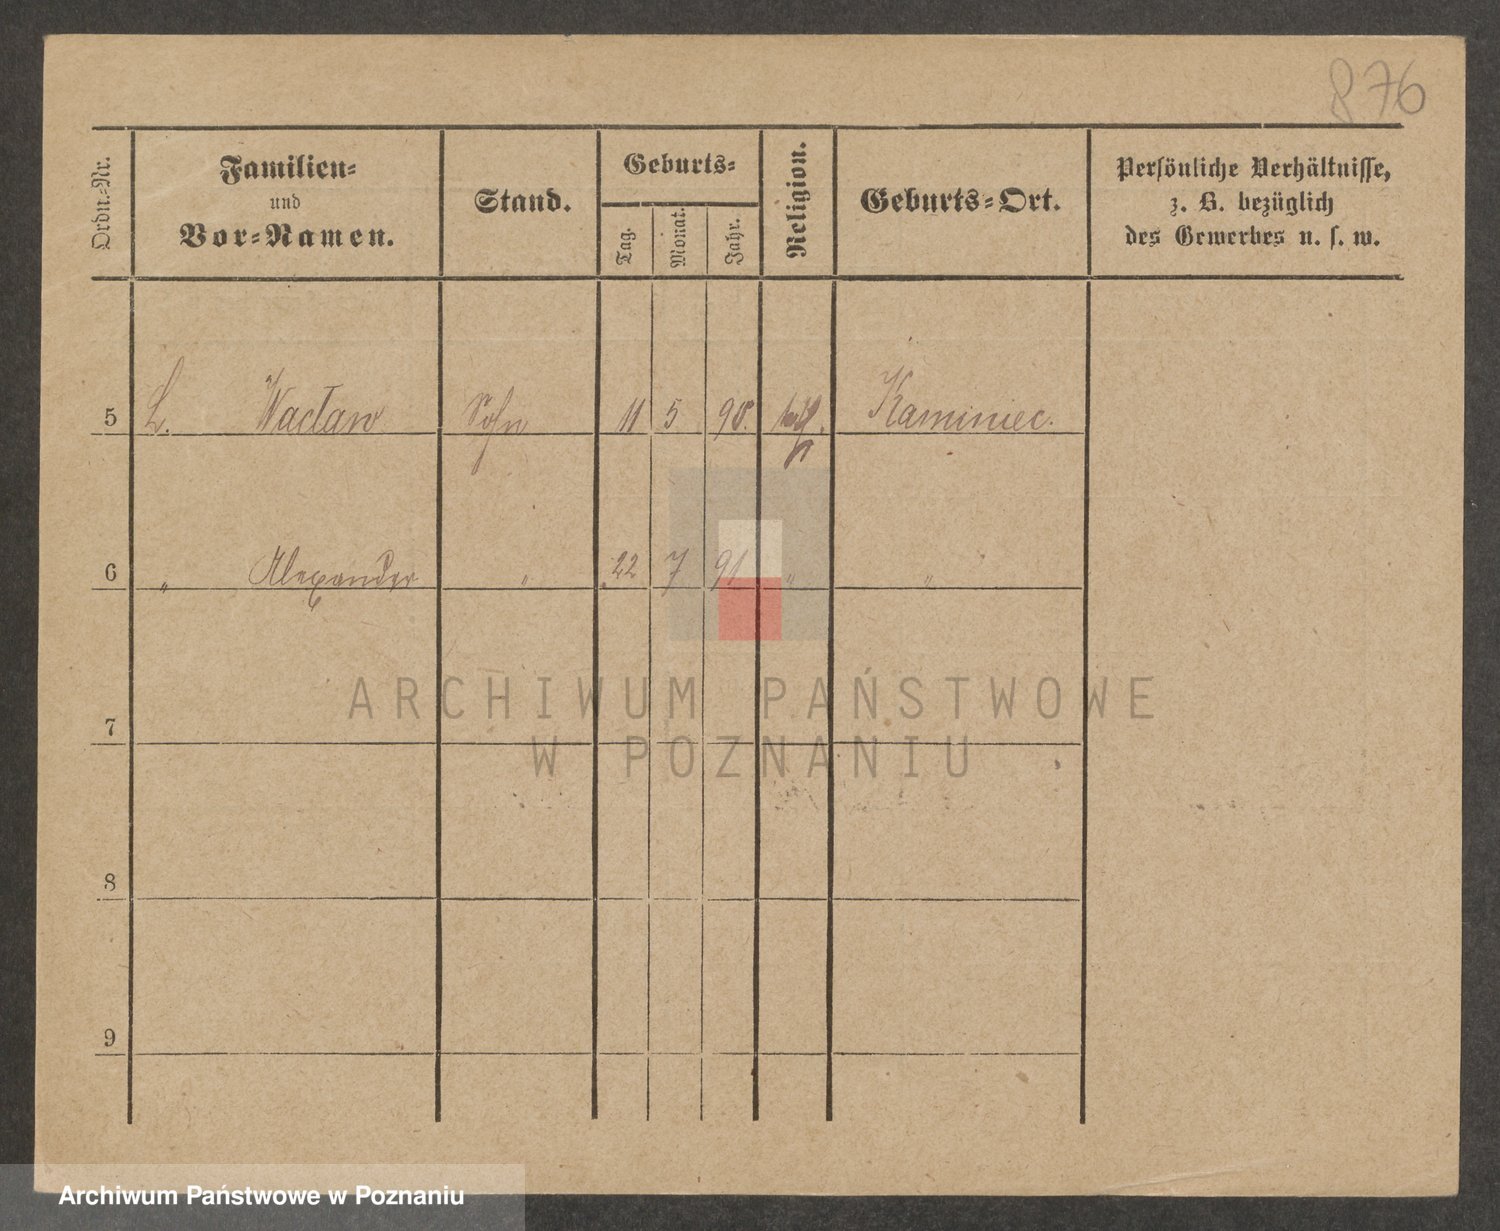 876
Ordn.-Nr.
Familien-
und
Vor-Namen.
Stand.
Geburts-
Tag.
Monat.
Jahr.
Religion.
Geburts-Ort.
Persönliche Verhältnisse,
z. B. bezüglich
des Gewerbes u. s. w.
5 L. Wacław Sohn 11 5 90. kath. Kaminiec.
6 " Alexander " 22 7 91 " "
7
8
9
ARCHIWUM PAŃSTWOWE
W POZNANIU
Archiwum Państwowe w Poznaniu